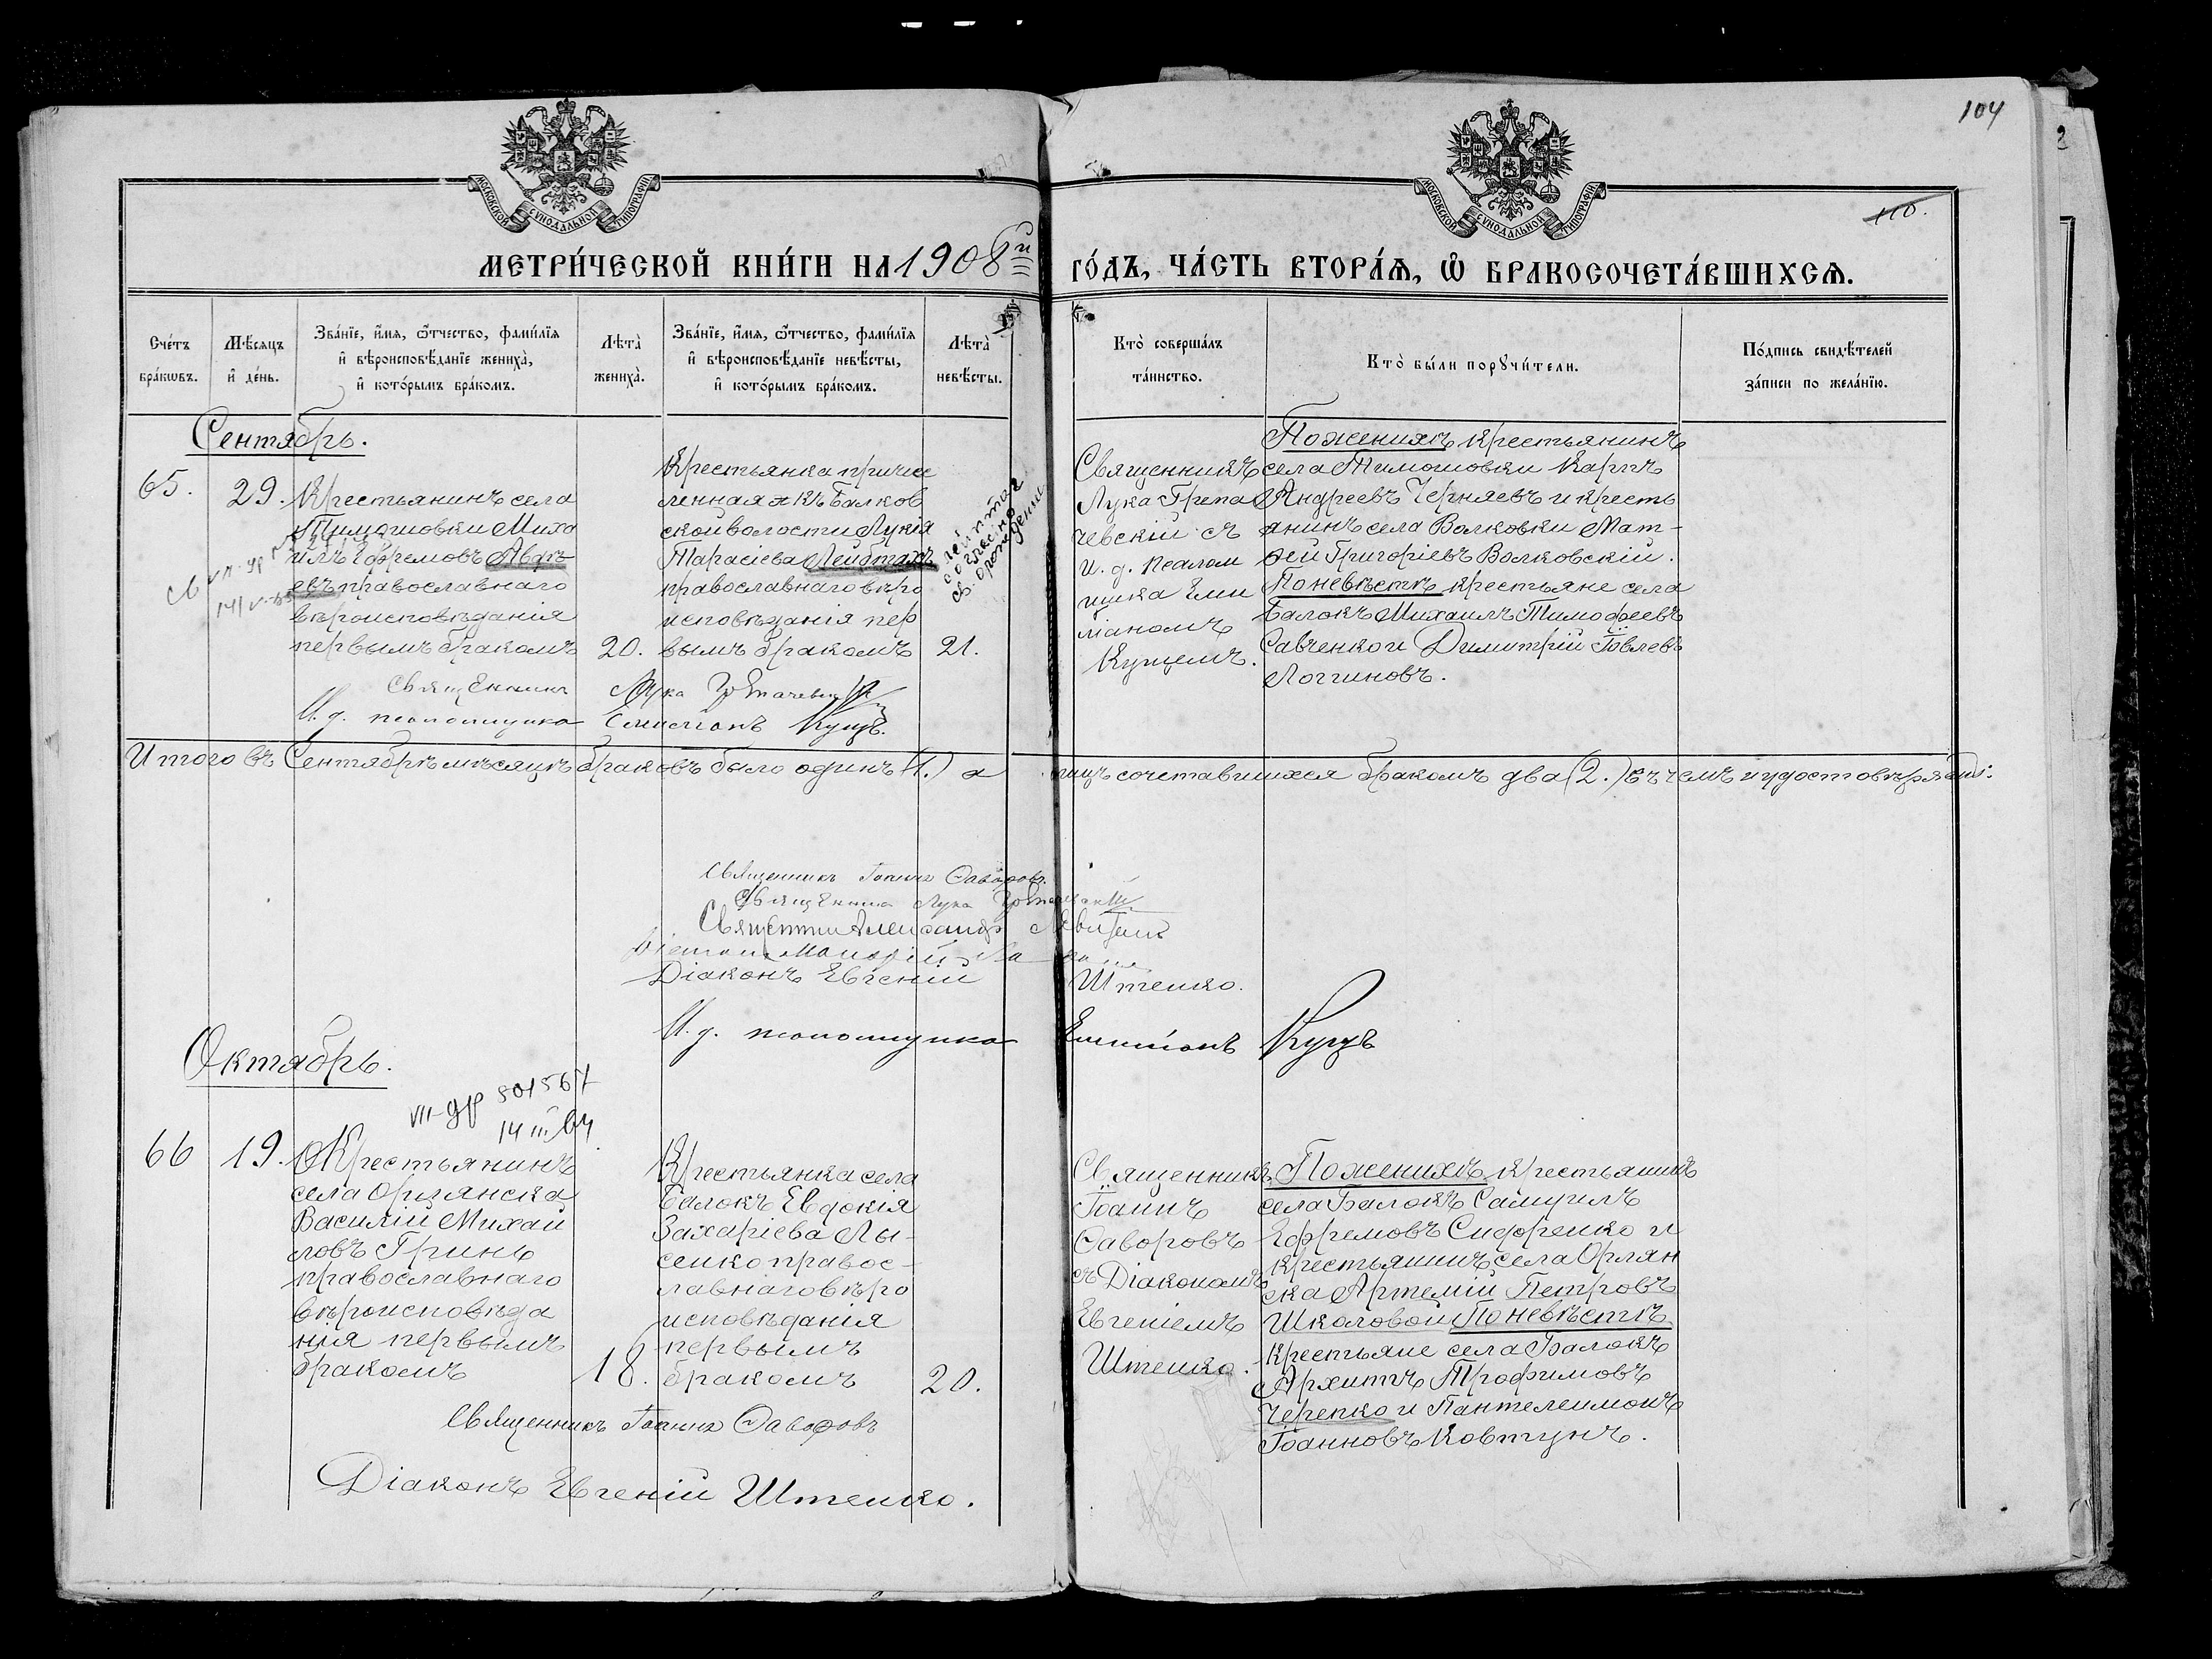 104
110.
МОСКОВСКОЙ СѴНОДАЛЬНОЙ ТИПОГРАФІИ
МОСКОВСКОЙ СѴНОДАЛЬНОЙ ТИПОГРАФІИ
МЕТРИ́ЧЕСКОЙ КНИ́ГИ НА 1908й ГО́ДЪ, ЧА́СТЬ ВТОРА́Ѧ, Ѽ БРАКОСОЧЕТА́ВШИХСѦ.
Сче́тъ
бра́кѡвъ.
Мѣ́сѧцъ
и҆ де́нь.
Зва́нїе, и҆́мѧ, ѻ҆́тчество, фами́лїѧ
и҆ вѣроисповѣ́данїе жениха̀,
и҆ кото́рымъ бра́комъ.
Лѣта̀
жениха̀.
Зва́нїе, и҆́мѧ, ѻ҆́тчество, фами́лїѧ
и҆ вѣроисповѣ́данїе невѣ́сты,
и҆ кото́рымъ бра́комъ.
Лѣта̀
невѣ́сты.
Кто̀ соверша́лъ
та́инство.
Кто̀ бы́ли порꙋчи́тели.
По́дпись свидѣ́телей
за́писи по жела́нїю.
Сентябрь.
65.
29.
Крестьянинъ села
Тимошовки Миха
илъ Ефремовъ Авдѣ
евъ православнаго
вѣроисповѣданія
первымъ бракомъ
20.
Крестьянка причис
ленная къ Балков
ской волости Лукія
Тарасіева Лейбтахъ
православнаго вѣро
исповѣданія пер
вымъ бракомъ
21.
Священникъ
Лука
чевскій съ
и. д. псалом
щика Еми
ліаномъ
Кущемъ.
По женихѣ крестьянинъ
села Тимошовки Карпъ
Андреевъ Черняевъ и кресть
янинъ села Волковки Мат-
ѳей Григоріевъ Волковскій.
По невѣстѣ крестьяне села
Балокъ Михаилъ Тимофеевъ
Савченко и Димитрій Іовлевъ
Логгиновъ.
Священникъ Лука
И. д. псаломщика Емиліанъ Кущъ.
Итого въ Сентябрѣ мѣсяцѣ браковъ было одинъ (1.) а лицъ сочетавшихся бракомъ два (2.) въ чемъ и удостовѣряемъ:
Священникъ Іоаннъ Ѳаворовъ.
Священникъ Лука
Священникъ Александръ
Діаконъ Евгеній Штепко.
И. д. псаломщика Емиліанъ Кущъ
Октябрь.
VII-др 501567
14 III 64
66
19.
Крестьянинъ
села Орлянска
Василій Михай
ловъ Гринь
православнаго
вѣроисповѣда
нія первымъ
бракомъ
18.
Крестьянка села
Балокъ Евдокія
Захаріева Лы-
сенко правос-
лавнаго вѣро
исповѣданія
первымъ
бракомъ
20.
Священникъ
Іоаннъ
Ѳаворовъ
съ Діакономъ
Евгеніемъ
Штепко.
По женихѣ крестьянинъ
села Балокъ Самуилъ
Ефремовъ Сидоренко и
крестьянинъ села Орлян
ска Артемій Петровъ
Школовой По невѣстѣ
крестьяне села Балокъ
Архипъ Трофимовъ
Черепко и Пантелеимонъ
Іоанновъ Ковтунъ.
Священникъ Іоаннъ Ѳаворовъ
Діаконъ Евгеній Штепко.